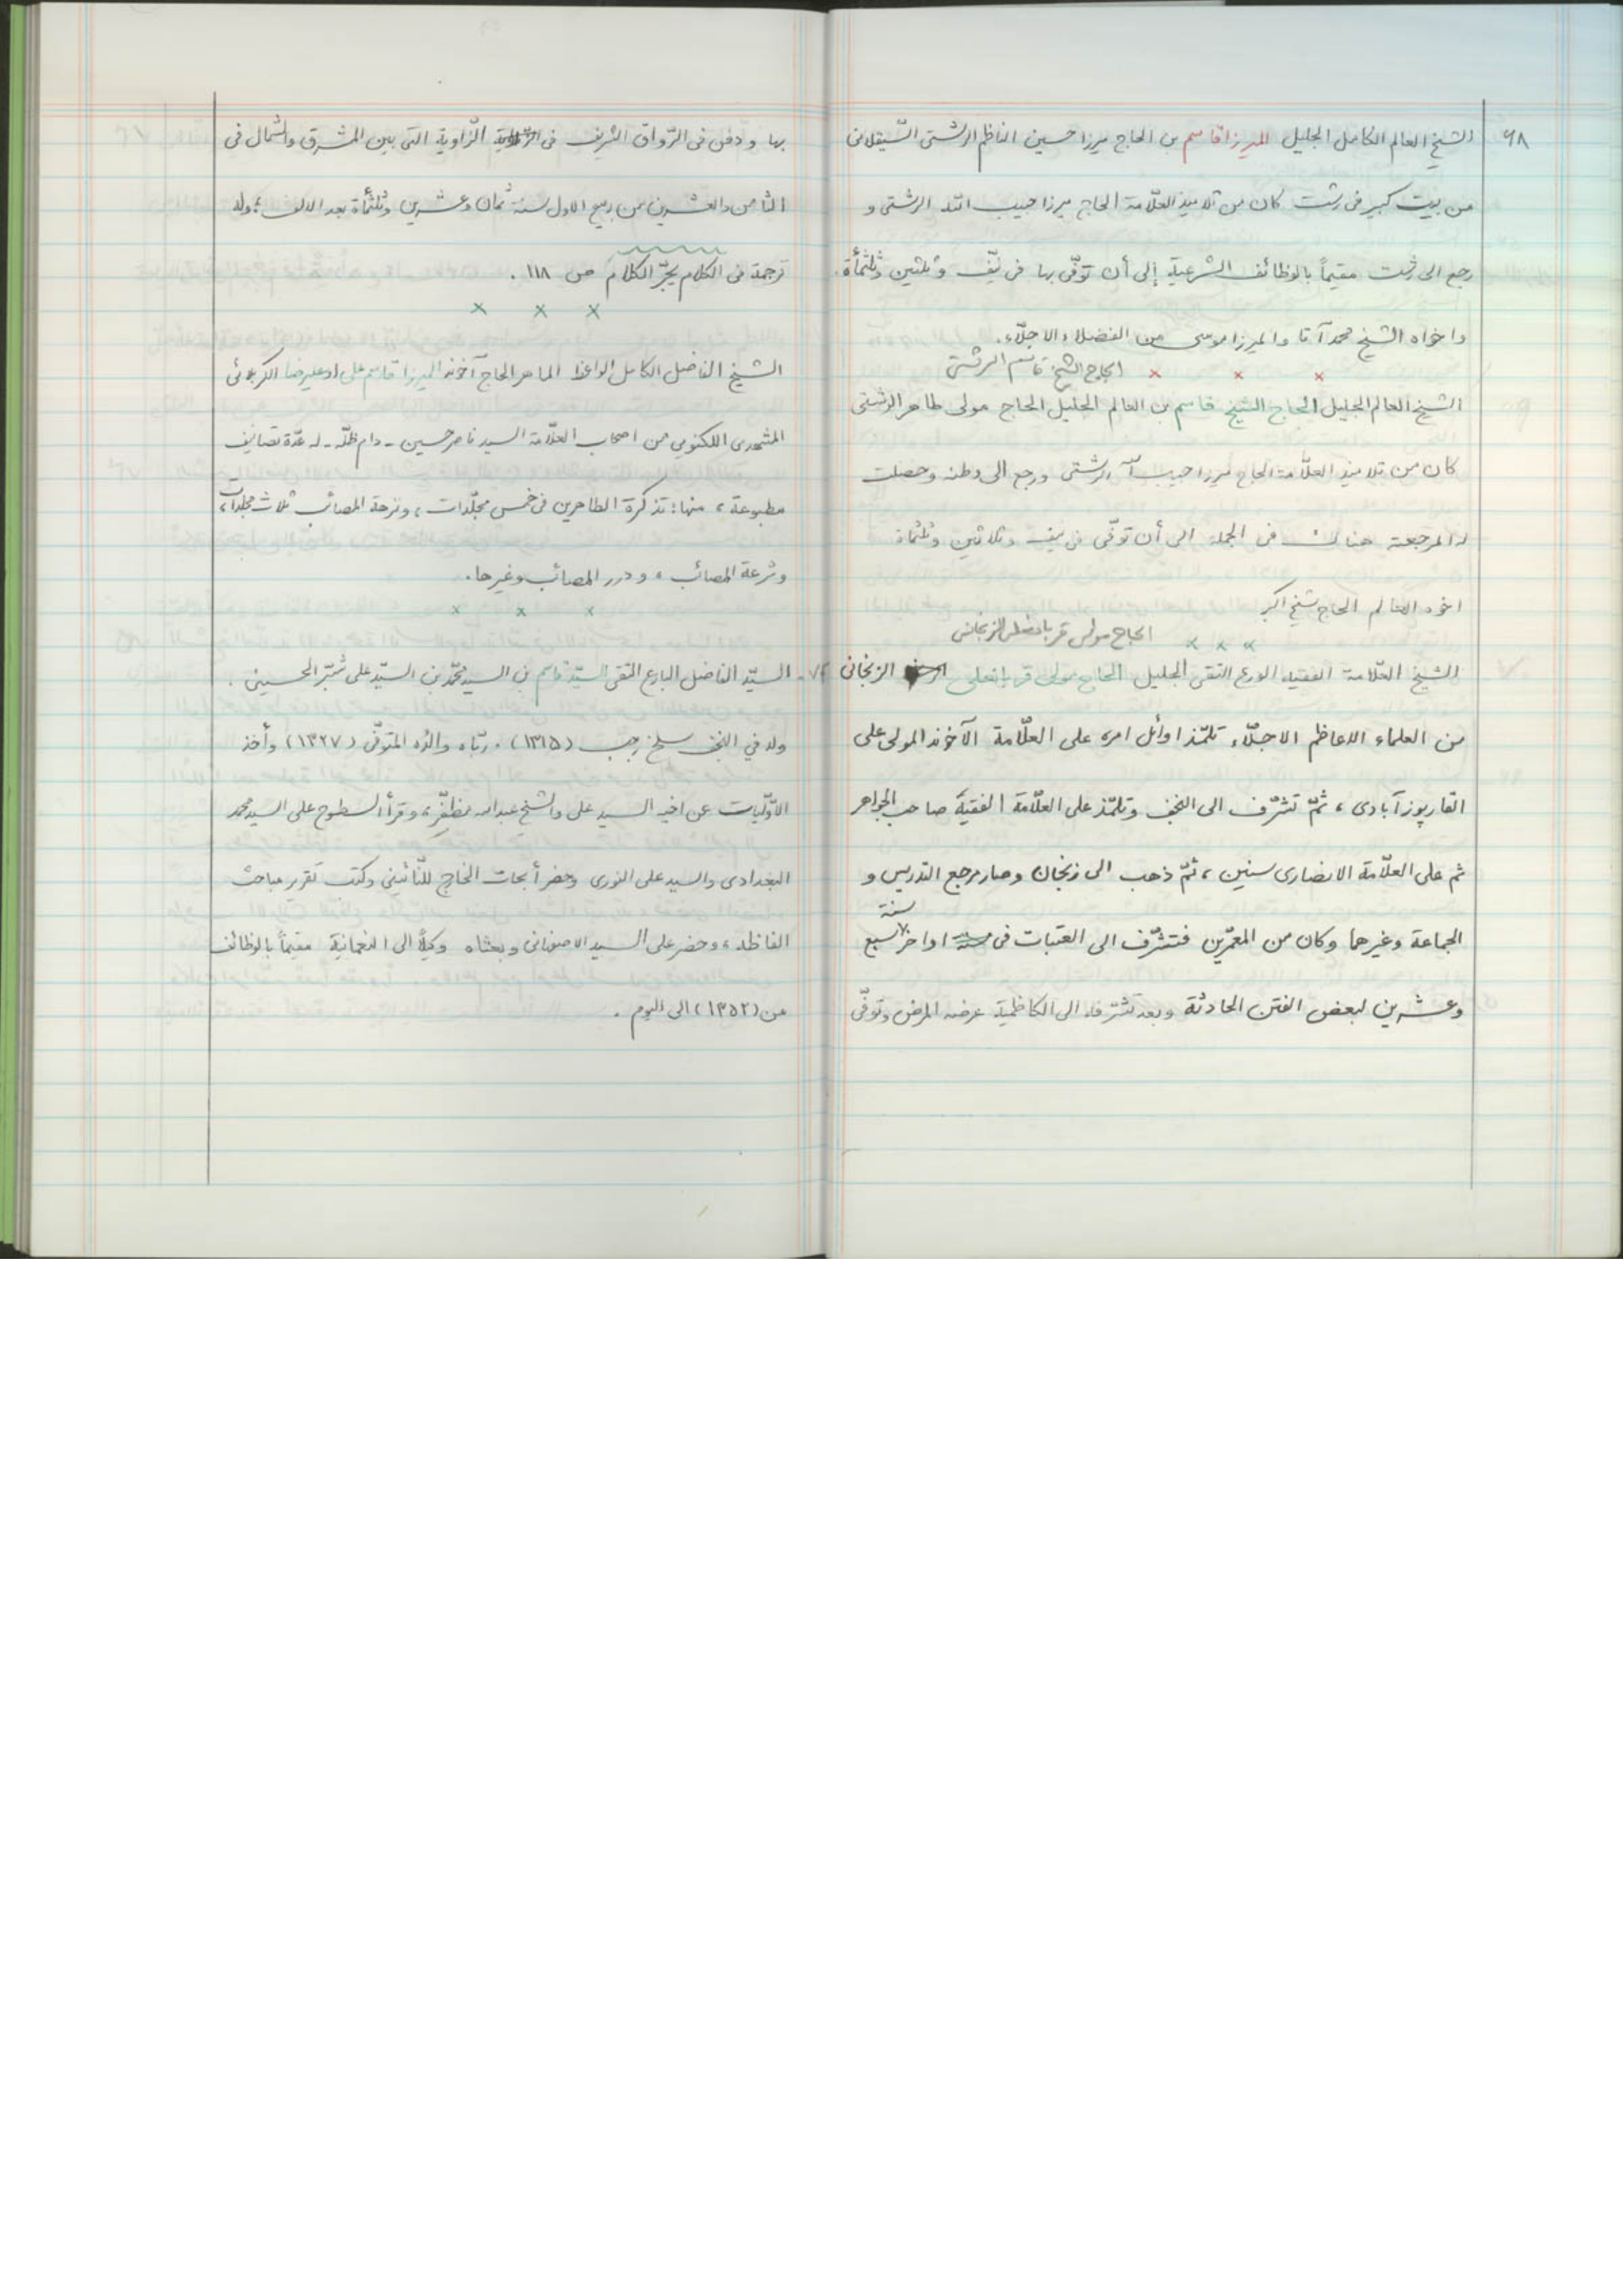 ٦٨
الشيخ العالم الكامل الجليل الميرزا قاسم بن الحاج ميرزا حسين الناظم الرشتى السّيقلانى
من بيت كبير فى رشت كان من تلاميذ العلّامة الحاج ميرزا حبيب الله الرشتى و
رجع الى رشت مقيماً بالوظائف الشرعية إلى أن توفّى بها فى نيّف و ثلثين وثلثمأة.
واخواه الشيخ محمد آقا والميرزا موسى من الفضلاء الاجلّاء.
× × × الحاج الشيخ قاسم الرشتى
الشيخ العالم الجليل الحاج الشيخ قاسم بن العالم الجليل الحاج مولى طاهر الرشتى
كان من تلاميذ العلّامة الحاج ميرزا حبيب الله الرشتى ورجع الى وطنه وحصلت
له المرجعية هناك فى الجملة الى أن توفّى فى نيف و ثلاثين وثلثمأة
اخوه العالم الحاج شيخ اكبر
× × × الحاج مولى قربانعلى الزنجانى
الشيخ العلّامة الفقيه الورع التقى الجليل الحاج مولى قربانعلى الزنجانى
من العلماء الاعاظم الاجلّاء تلمّذ اوائل امره على العلّامة الآخوند المولى على
القارپوزآبادى ، ثمّ تشرّف الى النجف وتلمّذ على العلّامة الفقيه صاحب الجواهر
ثم على العلّامة الانصارى سنين ، ثمّ ذهب الى زنجان وصار مرجع التدريس و
الجماعة وغيرها وكان من المعمّرين فتشرّف الى العتبات فى اواخر سنة سبع
وعشرين لبعض الفتن الحادثة وبعد تشرّفه الى الكاظمية عرضه المرض وتوفّى
بها و دفن فى الرّواق الشريف فى الزّاوية التى بين المشرق والشمال فى
الثامن والعشرين من ربيع الاول سنة ثمان وعشرين وثلثمأة بعد الالف ؛ وله
ترجمة فى الكلام يجرّ الكلام ص ١١٨ .
× × ×
الشيخ الفاضل الكامل الواعظ الماهر الحاج آخوند الميرزا قاسم على الكربلائى
اللكنوى من اصحاب العلّامة السيد ناصر حسين - دام ظلّه - له عدّة تصانيف
مطبوعة ، منها : تذكرة الطاهرين فى خمس مجلّدات ، ونزهة المصائب ثلاث مجلدات ،
و المصائب ، و درر المصائب وغيرها .
× × ×
السيّد الفاضل البارع التقى السيّد قاسم بن السيد محمّد بن السيّد على شبّر الحسينى .
ولد في النجف سلخ رجب (١٣١٥) . ربّاه والده المتوفّى (١٣٢٧) وأخذ
الاوّليات عن اخيه السيد على والشيخ عبدالله مظفّر ، وقرأ السطوح على السيد محمد
البغدادى والسيد على النورى وحضر أبحاث الخارج للنّائينى وكتب تقرير مباحث
الفاظه ، وحضر على السيد الاصفهانى وبعثاه وكيلاً الى النعمانية مقيماً بالوظائف
من (١٣٥٢) الى اليوم .